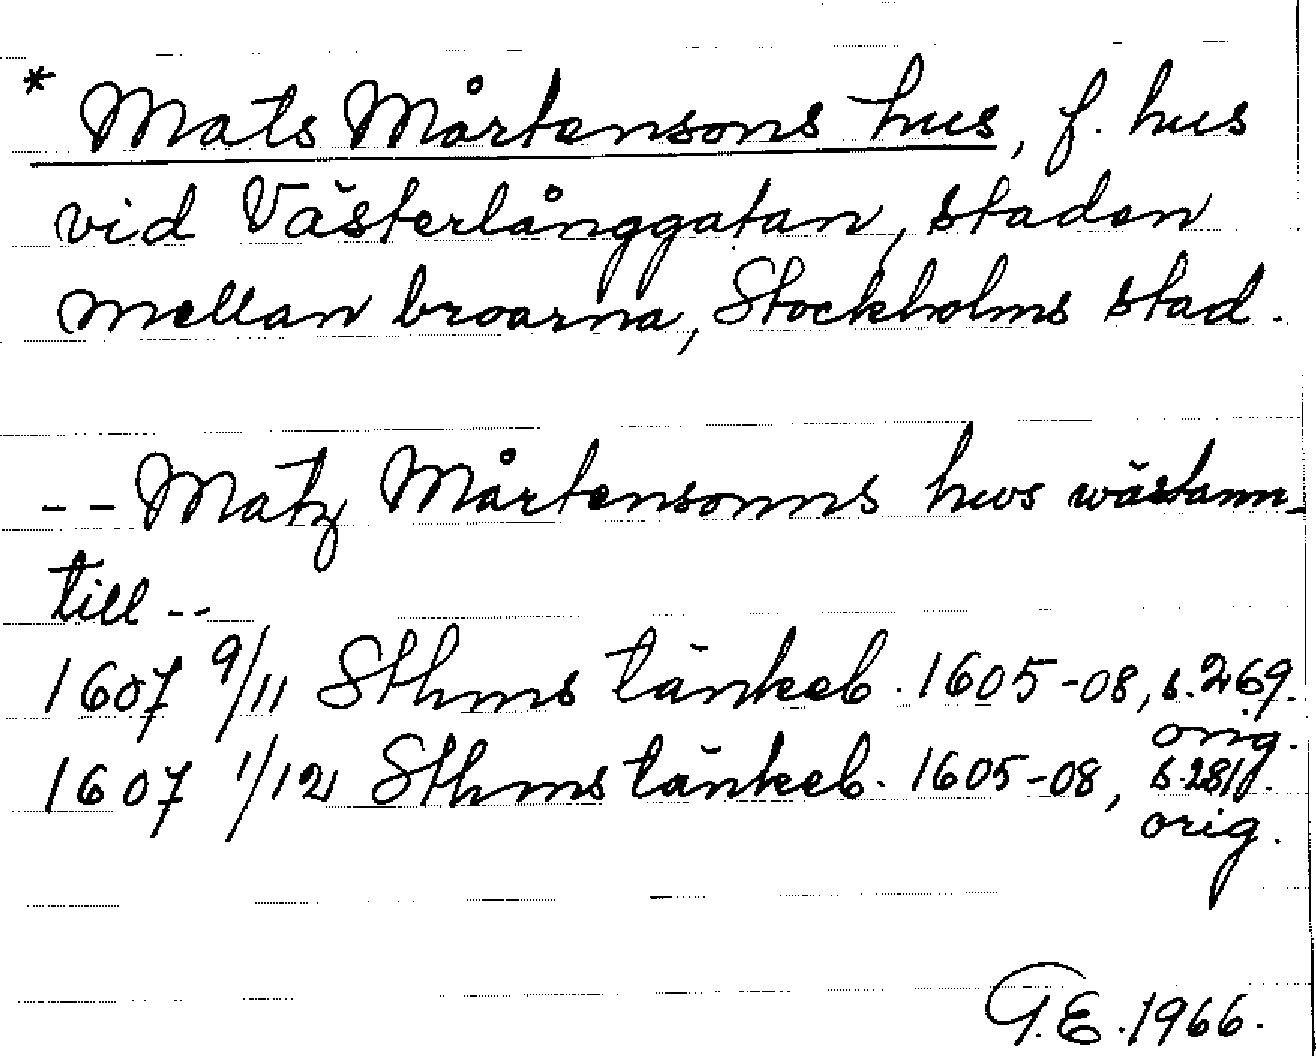 * Mats Mårtensons hus, f. hus
vid Västerlånggatan, staden
mellan broarna, Stockholms stad.
-- Matz Mårtensonns hws wästann-
till --
1607 9/11 Sthms tänkeb. 1605-08, s. 269.
orig.
1607 1/12 Sthms tänkeb. 1605-08, s. 281.
orig.
G.E. 1966.